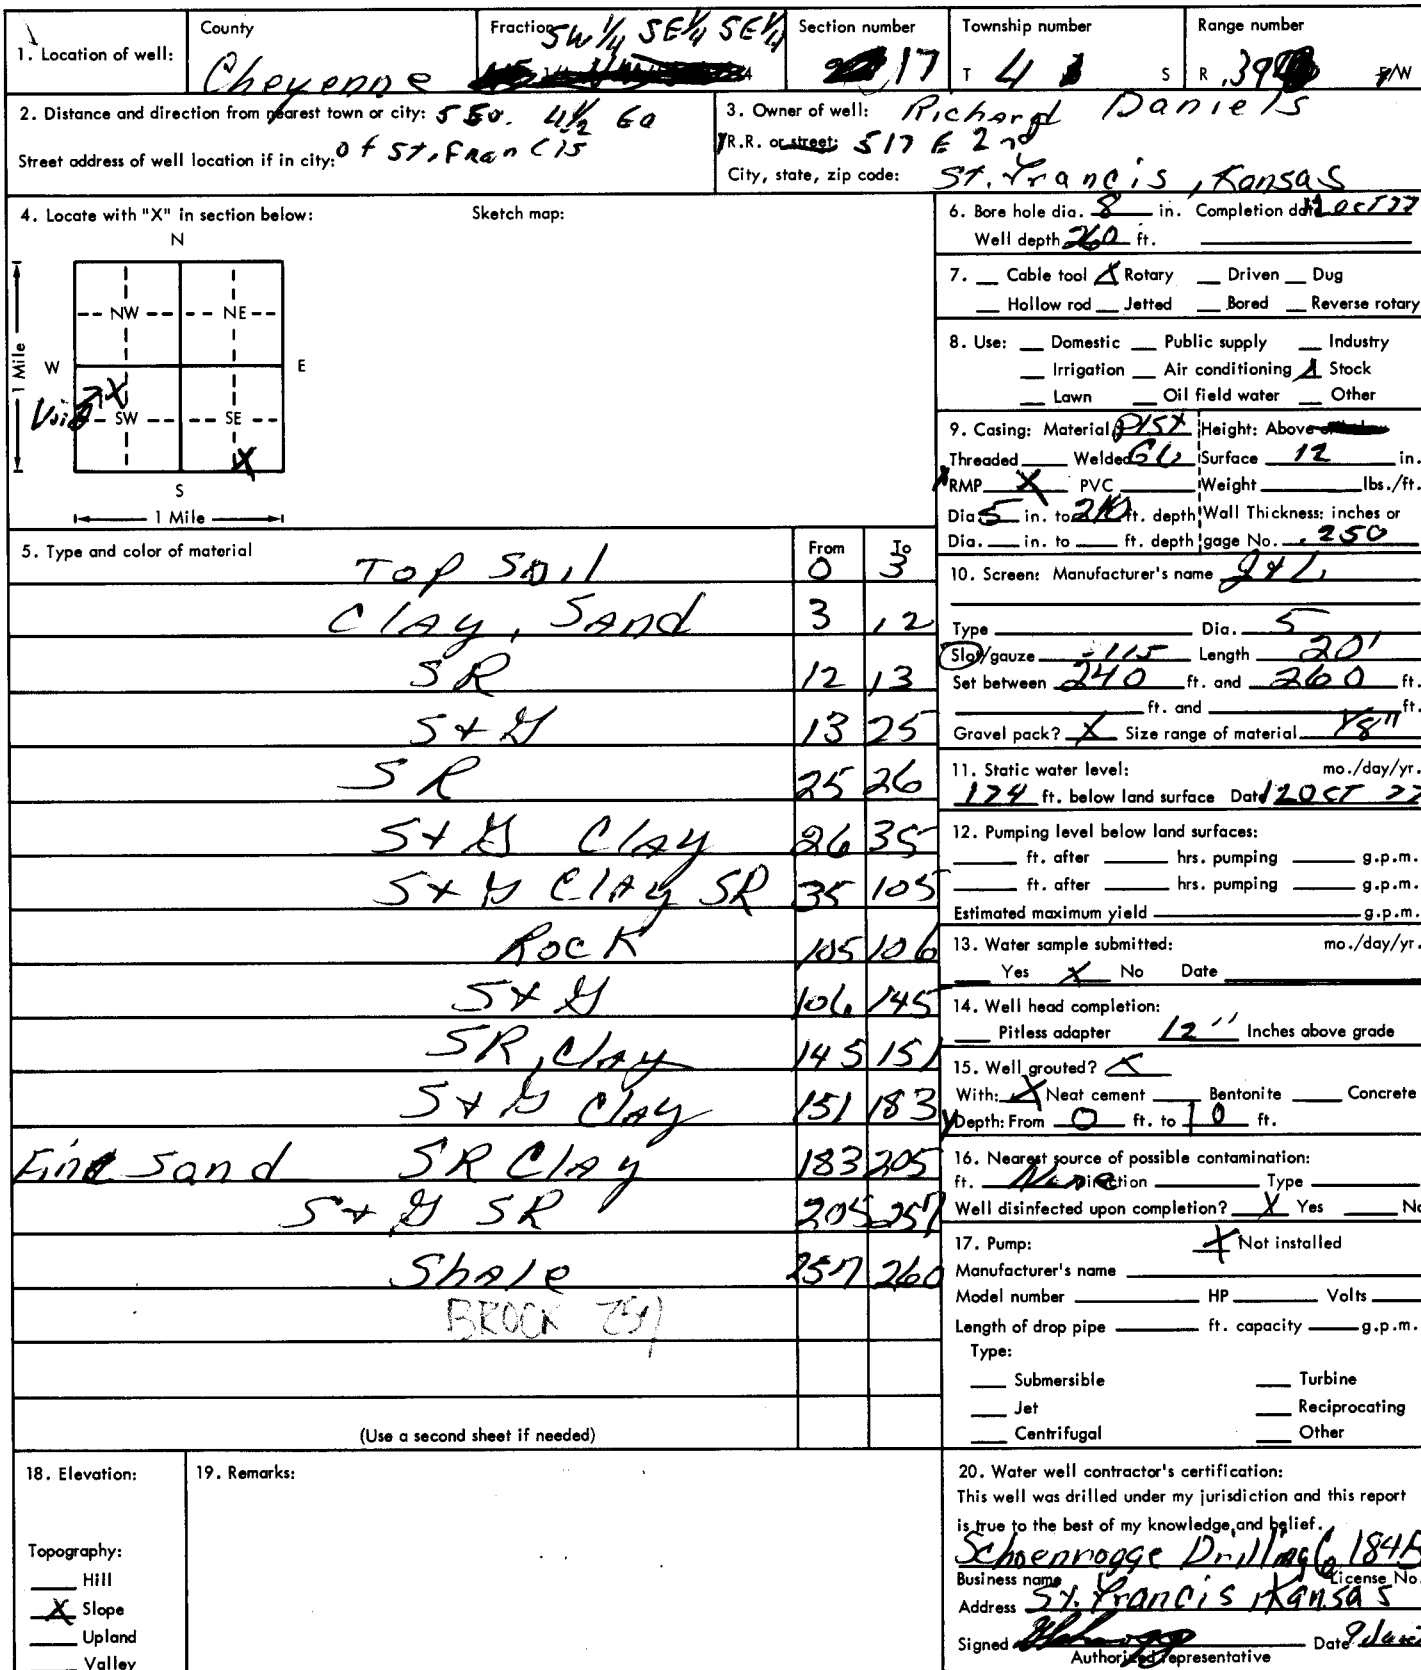 County Fraction SW 1/4 SE 1/4 SE 1/4 Section number Township number Range number
1. Location of well: Cheyenne 17 T 4 S R 39 E/W
2. Distance and direction from nearest town or city: 5 So. 4 1/2 Ea
Street address of well location if in city: of St. Francis
3. Owner of well: Richard Daniels
R.R. or street: 517 E 2nd
City, state, zip code: St. Francis, Kansas
4. Locate with "X" in section below: Sketch map:
N
NW NE
1 Mile
W E
X
SW SE
X
S
1 Mile
5. Type and color of material From To
Top Soil 0 3
Clay, Sand 3 12
SR 12 13
S + G 13 25
SR 25 26
S + G Clay 26 35
S + G Clay SR 35 105
Rock 105 106
S + G 106 145
SR, Clay 145 151
S + G Clay 151 183
Fine Sand SR Clay 183 205
S + G SR 205 257
Shale 257 260
BROCK
(Use a second sheet if needed)
6. Bore hole dia. 8 in. Completion date 12 Oct 77
Well depth 260 ft.
7. Cable tool X Rotary Driven Dug
Hollow rod Jetted Bored Reverse rotary
8. Use: Domestic Public supply Industry
Irrigation Air conditioning X Stock
Lawn Oil field water Other
9. Casing: Material Plst Height: Above
Threaded Welded GL Surface 12 in.
RMP X PVC Weight lbs./ft.
Dia. 5 in. to 240 ft. depth Wall Thickness: inches or
Dia. in. to ft. depth gage No. .250
10. Screen: Manufacturer's name J & L
Type Dia. 5
Slot/gauze .115 Length 20'
Set between 240 ft. and 260 ft.
ft. and ft.
Gravel pack? X Size range of material 1/8"
11. Static water level: mo./day/yr.
174 ft. below land surface Date 12 Oct 77
12. Pumping level below land surfaces:
ft. after hrs. pumping g.p.m.
ft. after hrs. pumping g.p.m.
Estimated maximum yield g.p.m.
13. Water sample submitted: mo./day/yr.
Yes X No Date
14. Well head completion:
Pitless adapter 12'' Inches above grade
15. Well grouted? X
With: X Neat cement Bentonite Concrete
Depth: From 0 ft. to 10 ft.
16. Nearest source of possible contamination:
ft. None Direction Type
Well disinfected upon completion? X Yes No
17. Pump: X Not installed
Manufacturer's name
Model number HP Volts
Length of drop pipe ft. capacity g.p.m.
Type:
Submersible Turbine
Jet Reciprocating
Centrifugal Other
18. Elevation:
Topography:
Hill
X Slope
Upland
Valley
19. Remarks:
20. Water well contractor's certification:
This well was drilled under my jurisdiction and this report
is true to the best of my knowledge and belief.
Schoenrogge Drilling Co 184B
Business name License No.
Address St. Francis, Kansas
Signed Date
Authorized representative